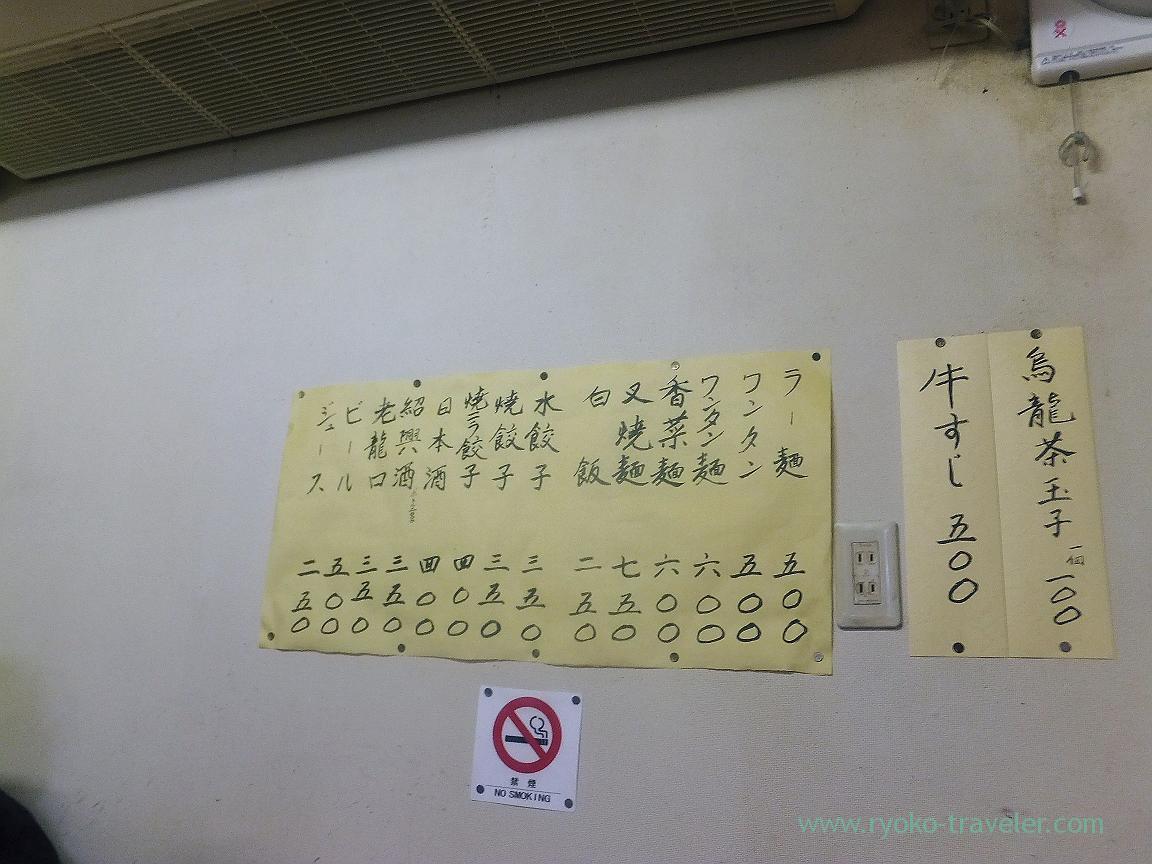 烏龍茶玉子 一個 一〇〇
牛すじ 五〇〇
ラー麺 五〇〇
ワンタン 五〇〇
ワンタン麺 六〇〇
香菜麺 六〇〇
叉焼麺 七五〇
白飯 二五〇
水餃子 三五〇
焼餃子 三五〇
焼ニラ餃子 四〇〇
日本酒 四〇〇
紹興酒 三五〇
老龍口 三五〇
ビール 五〇〇
ジュース 二五〇
禁煙
NO SMOKING
www.ryoko-traveler.com